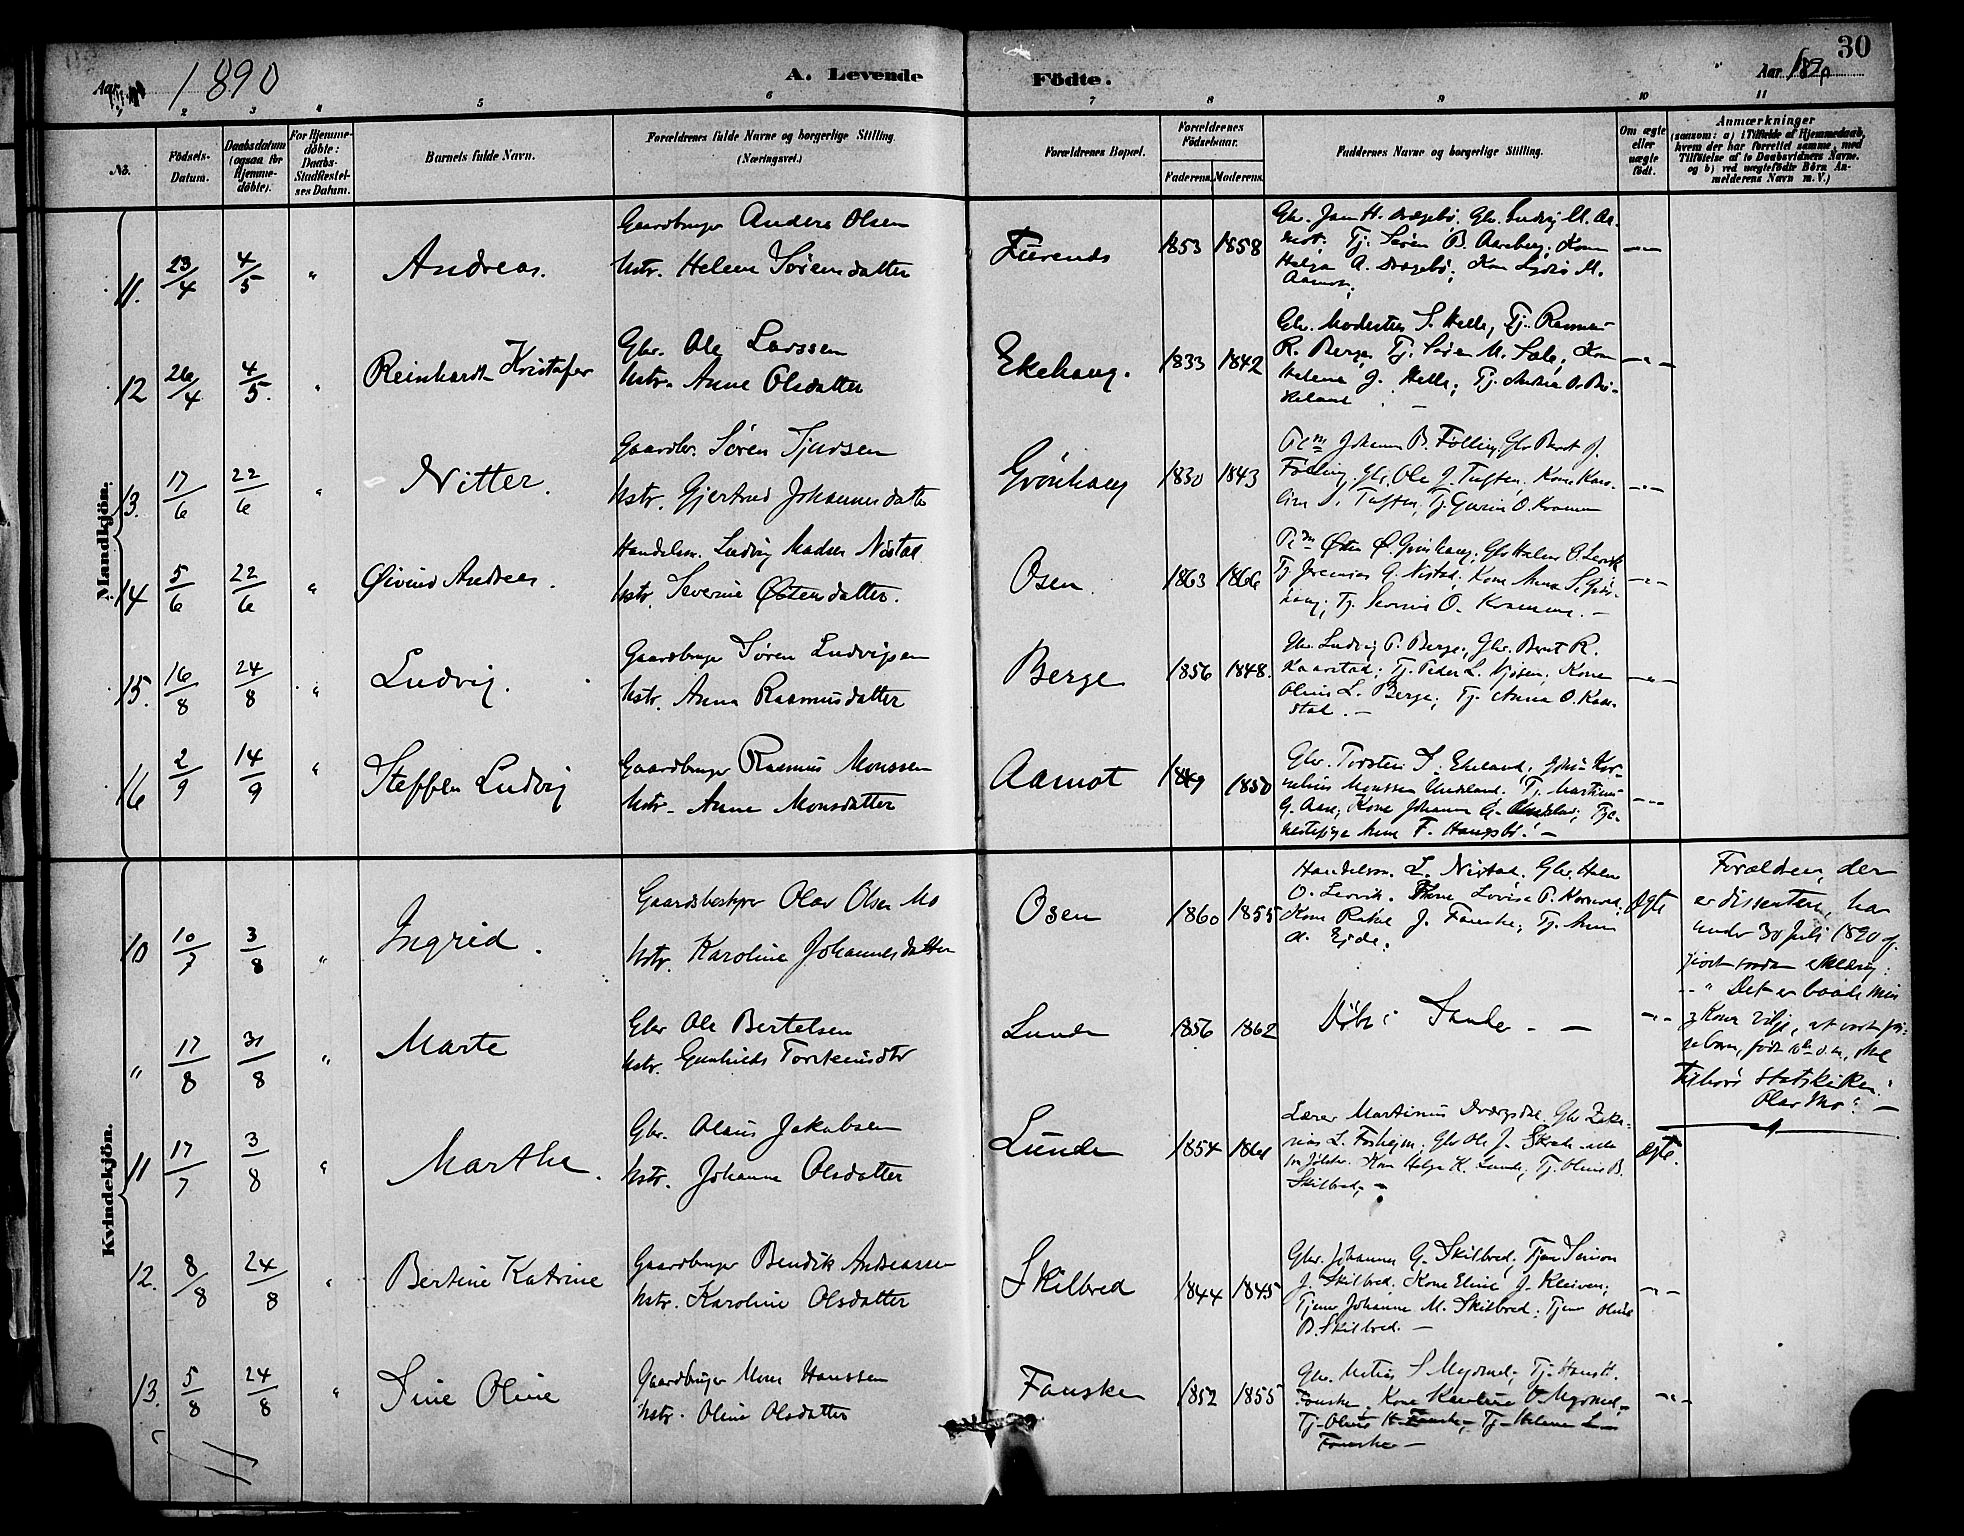 30
Aar 1890
A. Levende
Födte.
Aar 1890
1 2 3 4 5 6 7 8 9 10 11
No.
Födsels-
Datum.
Daabsdatum
(ogsaa for
Hjemme-
döbte).
For Hjemme-
döbte:
Daabs-
Stadfæstel-
ses Datum.
Barnets fulde Navn.
Forældrenes fulde Navne og borgerlige Stilling.
(Næringsvei.)
Forældrenes Bopæl.
Forældrenes
Födselsaar.
Faderens. Moderens.
Faddernes Navne og borgerlige Stilling.
Om ægte
eller
uægte
födt.
Anmærkninger
(saasom: a) i Tilfælde af Hjemmedaab,
hvem der har forrettet samme, med
Tilföielse af to Daabsvidners Navne.
og b) ved uægtefödte Börn An-
melderens Navn m. V.)
Mandkjön.
11. 23/4 4/5 " Andreas.
Gaardbruger Anders Olsen
Hstr. Helene Sørensdatter
1853 1858
Gbr. Jam H. Drægebø. Gbr. Ludvig M. Aa-
mot. Tj. Søren B. Aarberg. Kone
Helga A. Drægebø; Kone M.
Aamot;
12 26/4 4/5. " Reinhardt Kristofer
Gbr. Ole Larssen
Hstr. Anne Olsdatter
Ekehaug. 1833 1842
Gbr. Modestus S. Helle, Tj. Rasmus
R. Berge, Tj. Søren M. Sæle, Kone
Helene J. Helle; Tj. Andrea O. Bir-
keland
13. 17/6 22/6 " Nitter.
Gaardbr. Søren Tjersen
Hstr. Gjertrud Johannesdatter
Grønhaug 1830 1843
Johannes B. Følling, Gbr Bernt J.
Følling, Gbr. Ole J. Tuften, Kone Karo-
line S. Tuften, Tj. O. Kramme
14 5/6 22/6 " Øivind Andreas.
Handelsm. Ludvig Madsen Nistad
Hstr. Severine Østensdatter.
Osen 1863 1866
Østen Ø. Grønhaug, Gbr Halvor O. Lervik
Tj Jeremias G. Nistad. Kone Anna S. Grøn-
haug; Tj. O. Kramme. -
15. 16/8 24/8 " Ludvig.
Gaardbruger Søren Ludvigsen
Hstr. Anna Rasmusdatter
Berge 1856 1848.
Gbr. Ludvig P. Berge, Gbr. Bernt R.
Kaarstad; Tj. Peder L. Kone
Oline L. Berge; Tj. Anna O. Kaar-
stad. -
16 2/9 14/9 " Steffen Ludvig
Gaardbruger Rasmus Monssen
Hstr. Anne Monsdatter
Aamot 1849 1850
Gbr. Torsten S. Ekeland. Kor-
nelius Monssen Undeland. Tj. Martinus
G. Aase, Kone Johanne G. Tje-
nestepige Anne F. Haugsbø! -
Kvindekjön.
10 10/7 3/8 " Ingrid.
Gaardsbestyrer Olav Olsen Mo
Hstr. Karoline Johannesdatter
Osen 1860 1855
Handelsm. L. Nistad. Gbr. Halvor
O. Lervik. Lovise P.
Kone Rakel J. Fauske; Tj. Anna
A. Eide.
Ægte
Forældrene, der
er dissentere, har
under 30 Juli 1890 af-
givet saadan erklæring:
"Det er baade min
og Kones vilje, at vort
barn, født skal
tilhøre Statskirken."
Olav Mo". -
" 17/8 31/8 " Marte
Gbr Ole Bertelsen
Hstr. Gunhild Torsteinsdtr
Lunde 1856 1862
Døbt i Sande. - -
11 17/7 3/8 " Marthe.
Gbr. Olaus Jakobsen
Hstr. Johanne Olsdatter
Lunde 1854 1864
Lærer Martinus Dvergsdal, Gbr Zaka-
rias L. Forheim. Gbr Ole J.
fra Jølster. Kone Helga K. Lunde, Tj. Oline B.
Skilbred, -
ægte.
12. 8/8 24/8 " Bertine Katrine
Gaardbruger Bendik Andreassen
Hstr. Karoline Olsdatter
Skilbred 1844 1845
Gbr. Johannes G. Skilbred. Tjener Simon
J. Skilbred. Kone Eline J. Kleiven;
Tjener Johanne M. Skilbred. Tjener Oline
B. Skilbred. -
13. 5/8 24/8 " Sine Oline
Gaardbruger Mons Hanssen
Hstr. Oline Olsdatter
Fauske 1852 1855
Gbr. Matias S Myrmel; Tj. Hans H.
Fauske. Kone Karoline O Myrmel,
Tj. H. Fauske, Tj. Helene L.
Fauske -